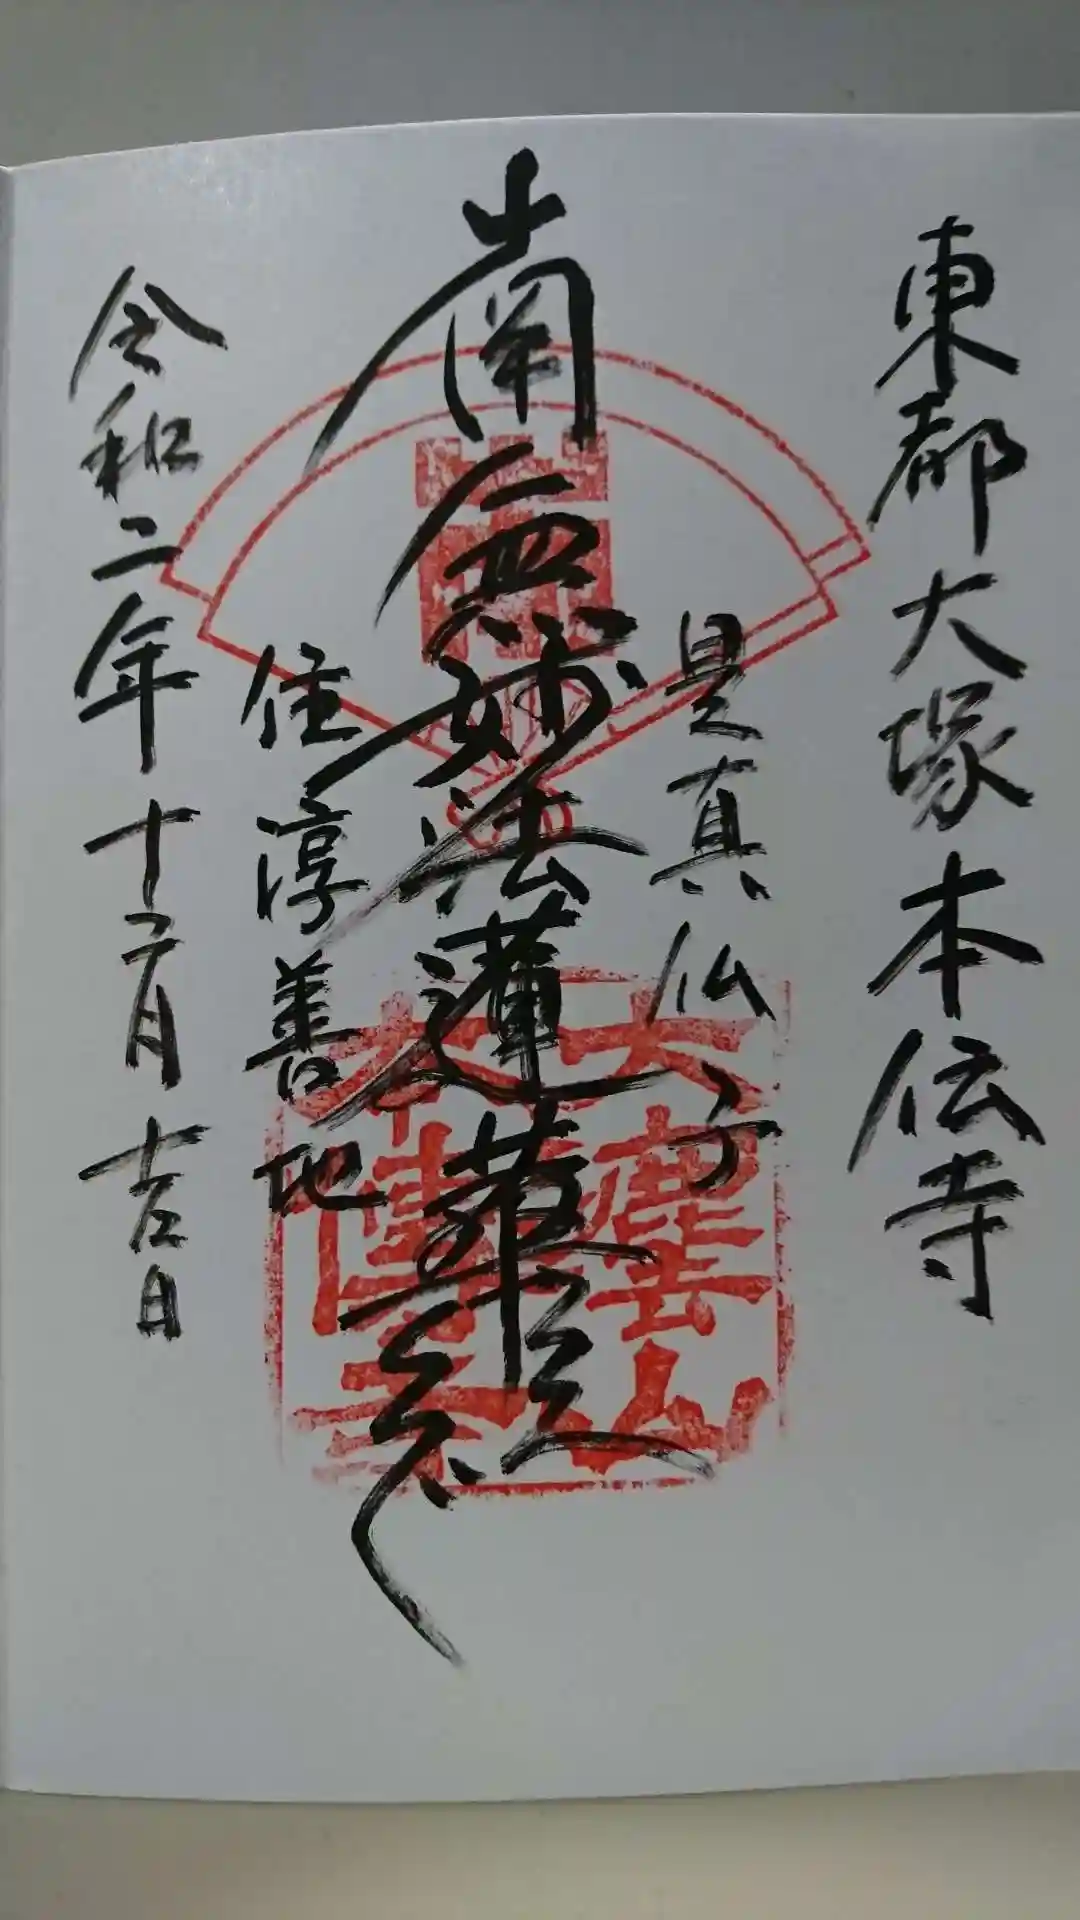 東都大塚本伝寺
是真仏子
南無妙法蓮華経
住淳善地
令和二年十二月吉日
大慶山
本傳寺